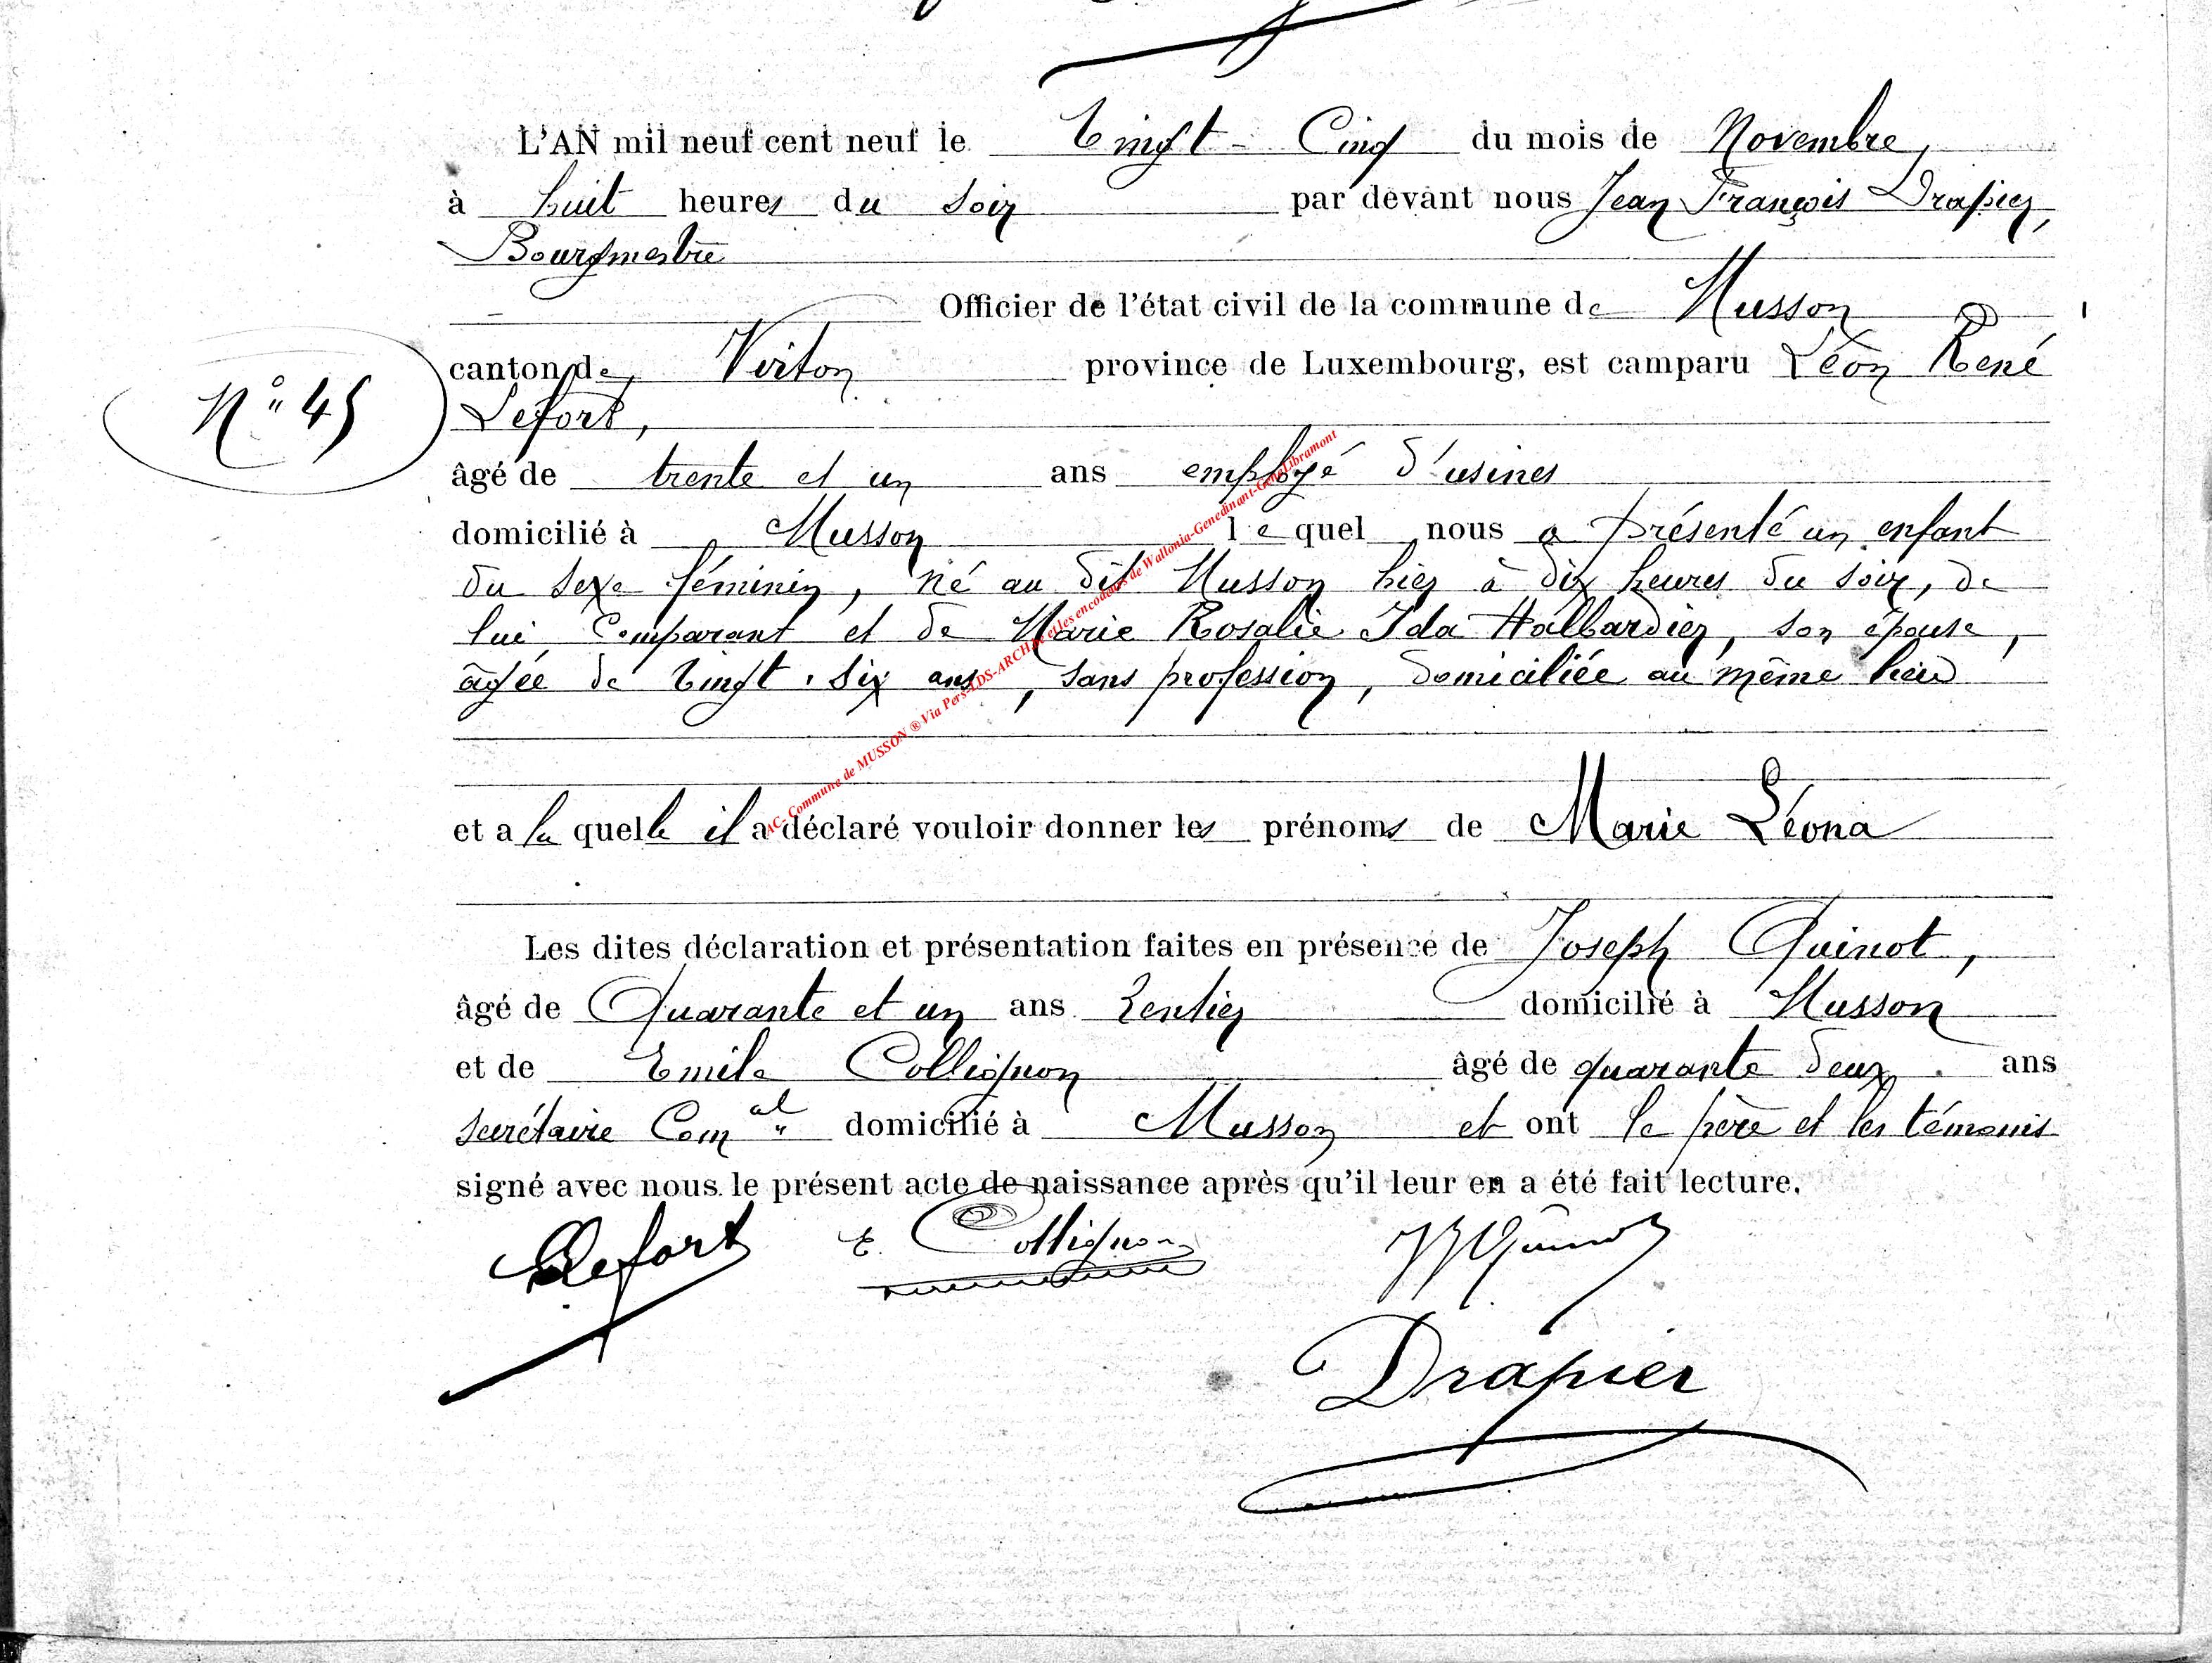 L'AN mil neuf cent neuf le Vingt-Cinq du mois de Novembre,
à huit heures du soir par devant nous Jean François Drapier,
Bourgmestre
Officier de l'état civil de la commune de Musson
canton de Virton province de Luxembourg, est camparu Léon René
N° 45
Lefort,
âgé de trente et un ans employé d'usines
domicilié à Musson lequel nous a présenté un enfant
du sexe féminin, né au dit Musson hier à dix heures du soir, de
lui Comparant et de Marie Rosalie Ida Halbardier, son épouse,
âgée de vingt-six ans, sans profession, domiciliée au même lieu
et a la quelle il a déclaré vouloir donner les prénoms de Marie Léona
Les dites déclaration et présentation faites en présence de Joseph Quinot,
âgé de Quarante et un ans Rentier domicilié à Musson
et de Emile Collignon âgé de quarante deux ans
secrétaire Comal domicilié à Musson et ont le père et les témouis
signé avec nous le présent acte de naissance après qu'il leur en a été fait lecture.
Lefort E. Collignon Quinot
Drapier
AC- Commune de MUSSON ® Via Pers-LDS-ARCH et les encodeurs de Wallonia-Genedinant-GeneLibramont